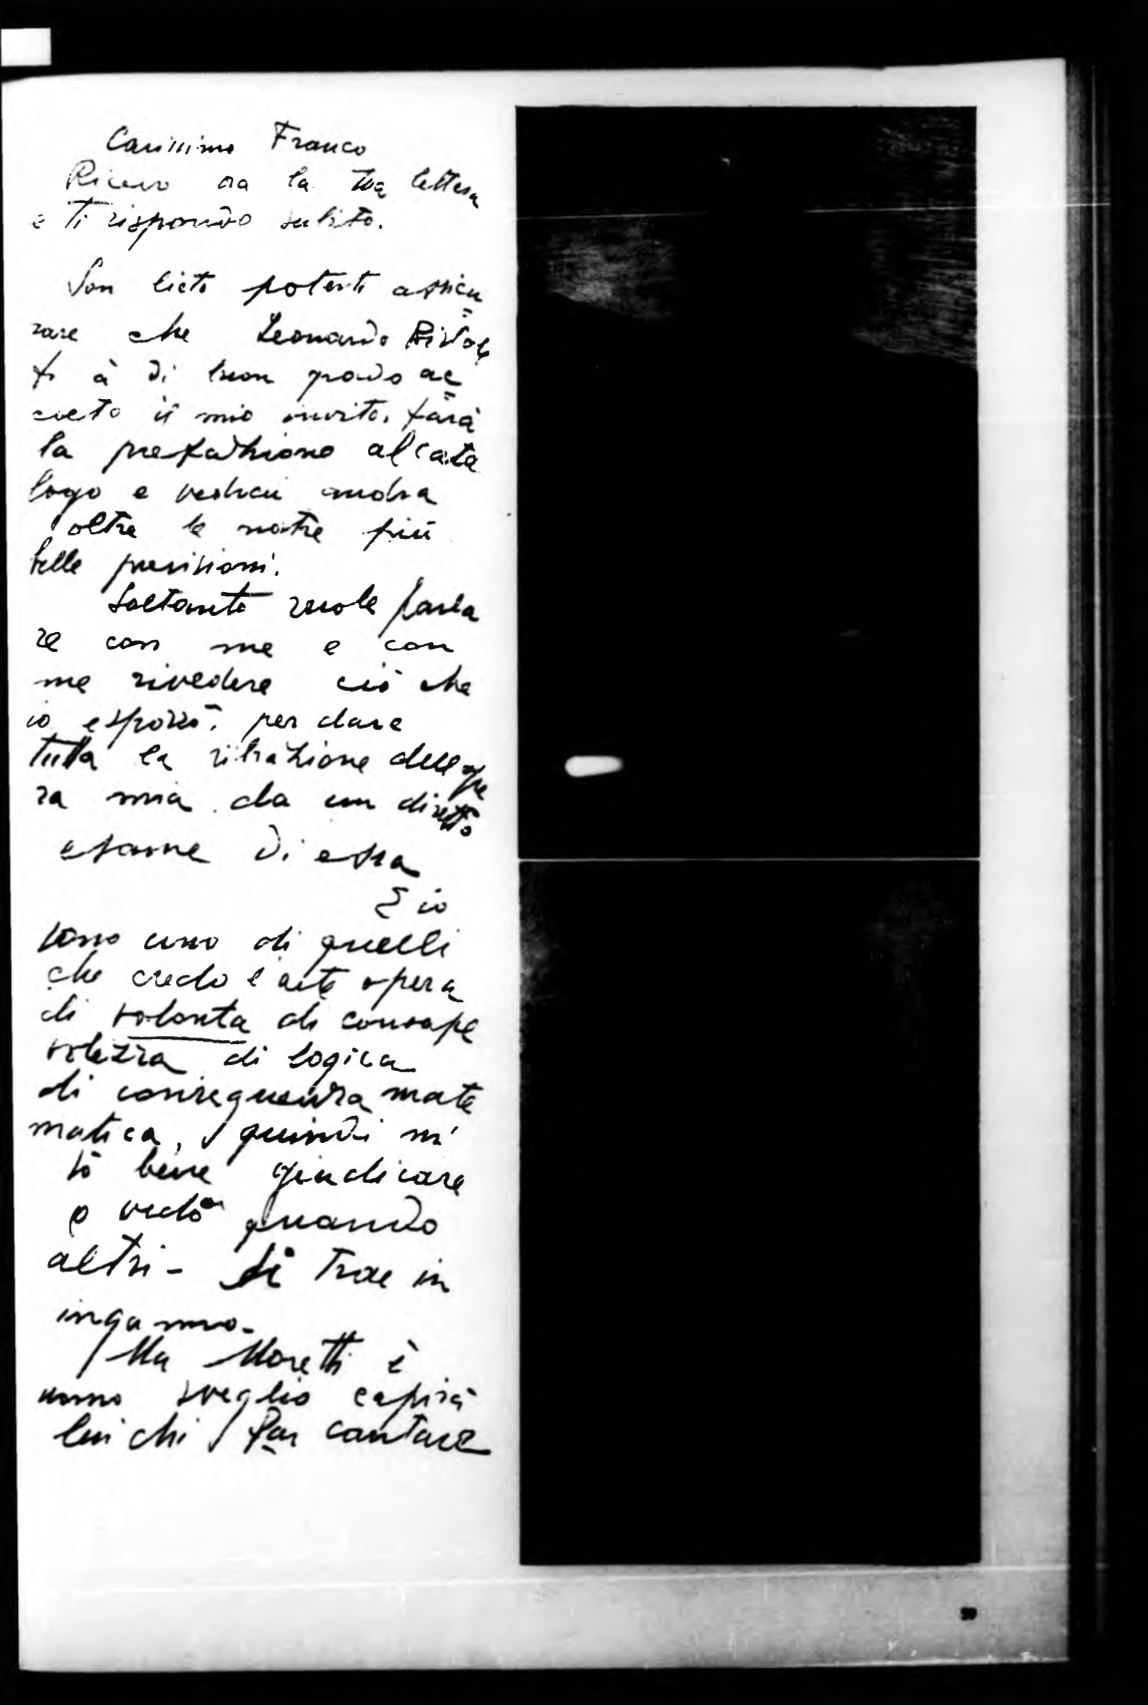 Carissimo Franco
Ricevo ora la tua lettera
e ti rispondo subito.
Son lieto poterti assicu
rare che Leonardo
à di buon grado ac
cetto il mio invito. farà
la prefazione al cata
logo e vedrai andrà
oltre le nostre più
belle previsioni.
Soltanto vuole parla
re con me e con
me rivedere ciò che
io esporrò. per dare
tutta la dell'ope
ra mia da un diretto
esame di essa
E io
sono uno di quelli
che credo l'arte opera
di volontà di consape
volezza di logica
di conseguenza mate
matica, quindi
sò bene giudicare
e vedo quando
altri - si trae in
inganno-
Ma Moretti è
uomo sveglio capirà
lui chi cantare